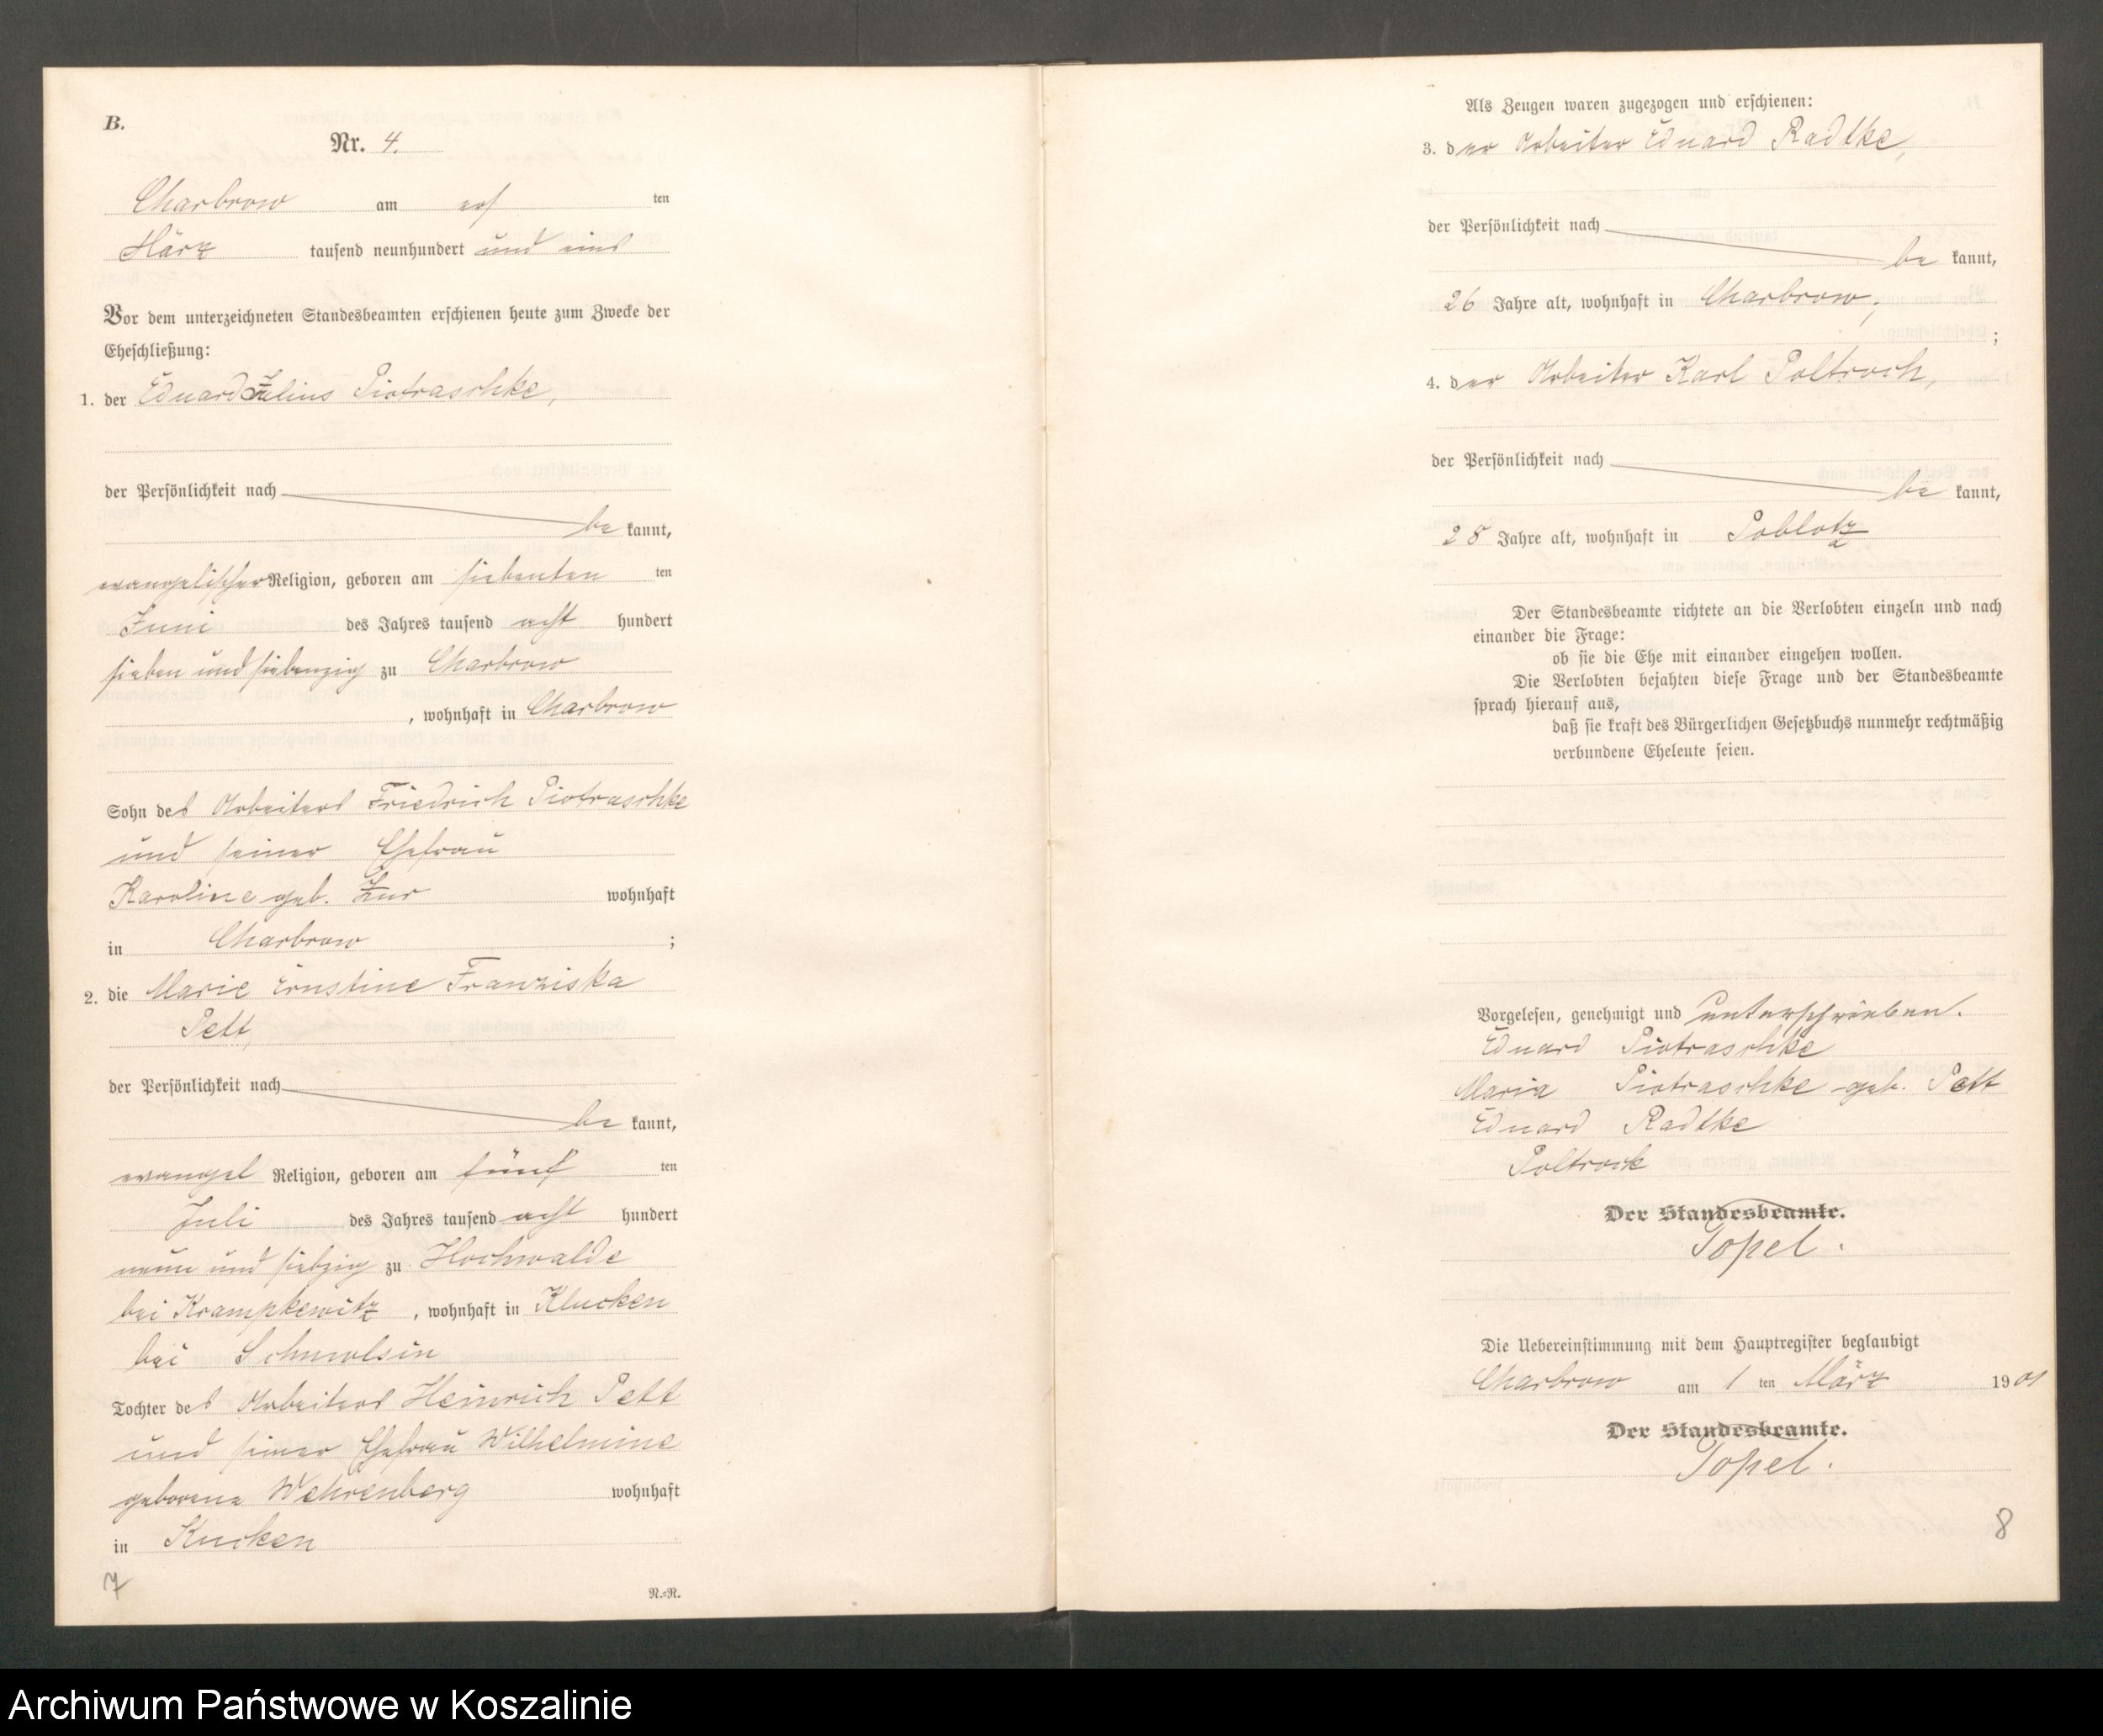 B.
Nr. 4.
Charbrow am erst ten
März tausend neunhundert und eins
Vor dem unterzeichneten Standesbeamten erschienen heute zum Zwecke der
Eheschließung:
1. der Eduard Julius Piotraschke,
der Persönlichkeit nach
be kannt,
evangelischer Religion, geboren am siebenten ten
Juni des Jahres tausend acht hundert
sieben und siebenzig zu Charbrow
, wohnhaft in Charbrow
Sohn des Arbeiters Friedrich Piotraschke
und seiner Ehefrau
Karoline geb. wohnhaft
in Charbrow ;
2. die Marie Ernstine Franziska
Pett,
der Persönlichkeit nach
be kannt,
evangel Religion, geboren am fünf ten
Juli des Jahres tausend acht hundert
neun und siebzig zu Hochwalde
bei Krampkewitz , wohnhaft in Klucken
bei Schmolsin
Tochter des Arbeiters Heinrich Pett
und seiner Ehefrau Wilhelmine
geborene Wehrenberg wohnhaft
in Kucken
7
N.=N.
Als Zeugen waren zugezogen und erschienen:
3. der Arbeiter Eduard Radtke,
der Persönlichkeit nach
be kannt,
26 Jahre alt, wohnhaft in Charbrow,
;
4. der Arbeiter Karl Poltroch,
der Persönlichkeit nach
be kannt,
28 Jahre alt, wohnhaft in Poblotz
Der Standesbeamte richtete an die Verlobten einzeln und nach
einander die Frage:
ob sie die Ehe mit einander eingehen wollen.
Die Verlobten bejahten diese Frage und der Standesbeamte
sprach hierauf aus,
daß sie kraft des Bürgerlichen Gesetzbuchs nunmehr rechtmäßig
verbundene Eheleute seien.
Vorgelesen, genehmigt und unterschrieben.
Eduard Piotraschke
Maria Piotraschke geb. Pett
Eduard Radtke
Poltrock
Der Standesbeamte.
Topel.
Die Uebereinstimmung mit dem Hauptregister beglaubigt
Charbrow am 1 ten März 1901
Der Standesbeamte.
Topel.
8
Archiwum Państwowe w Koszalinie